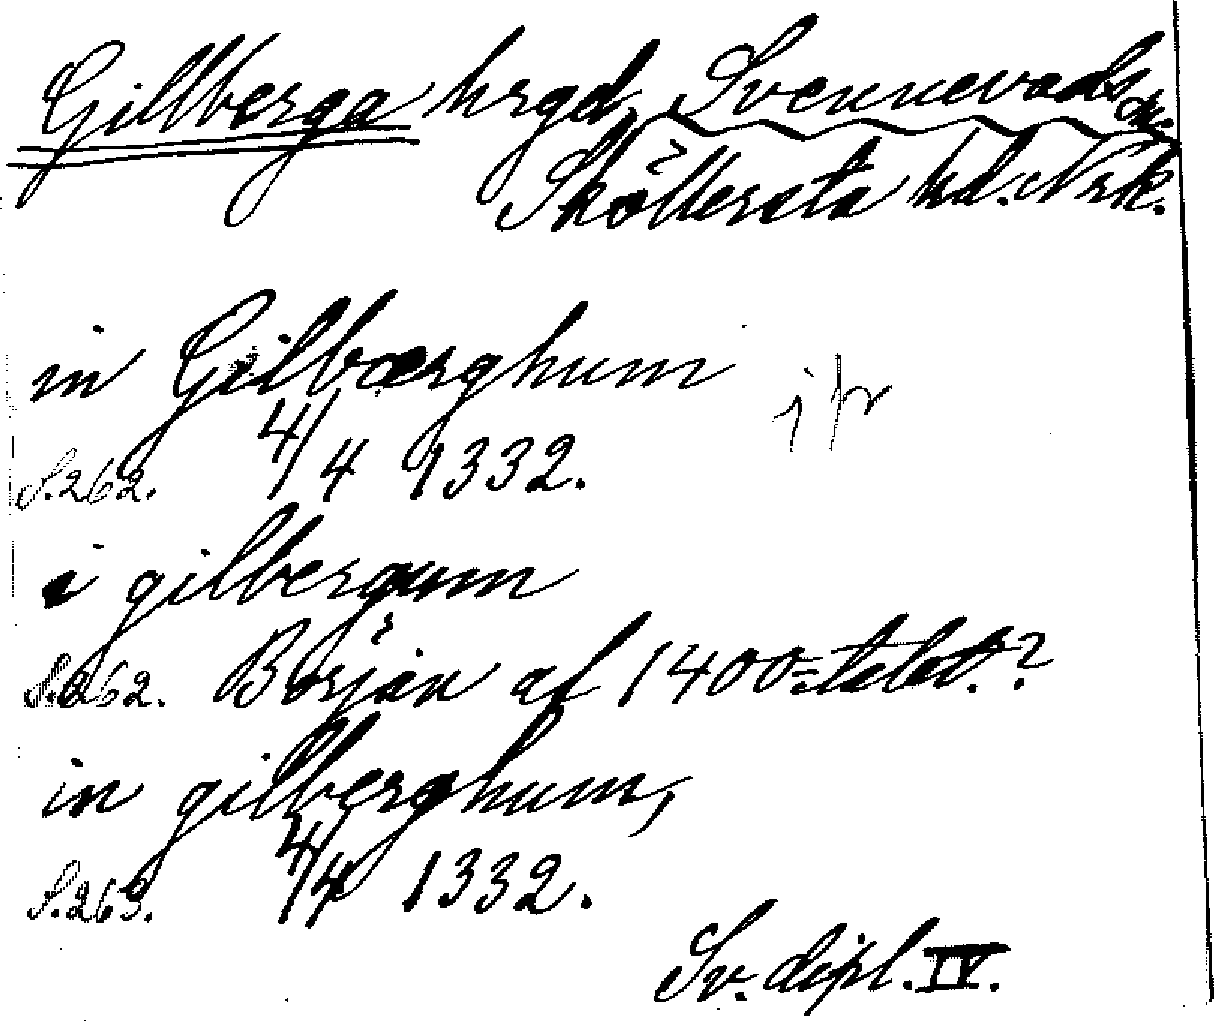 Gilberga hrgd, Svennevads sn.
Sköllersta hd. Nrk.
in Gilbærghum
4/4 1332.
S. 262.
i gilbergum
S. 262. Börjän af 1400-talet.?
in gilberghum,
4/4 1332.
S. 263.
Sv. dipl. IV.